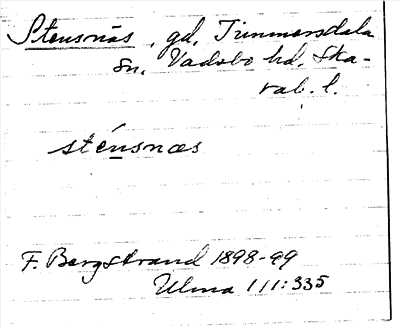 Stensnäs, gd, Timmersdala
sn, Vadsbo hd, Ska-
rab. l.
sténsnæs
F. Bergstrand 1898-99
Ulma 111:335